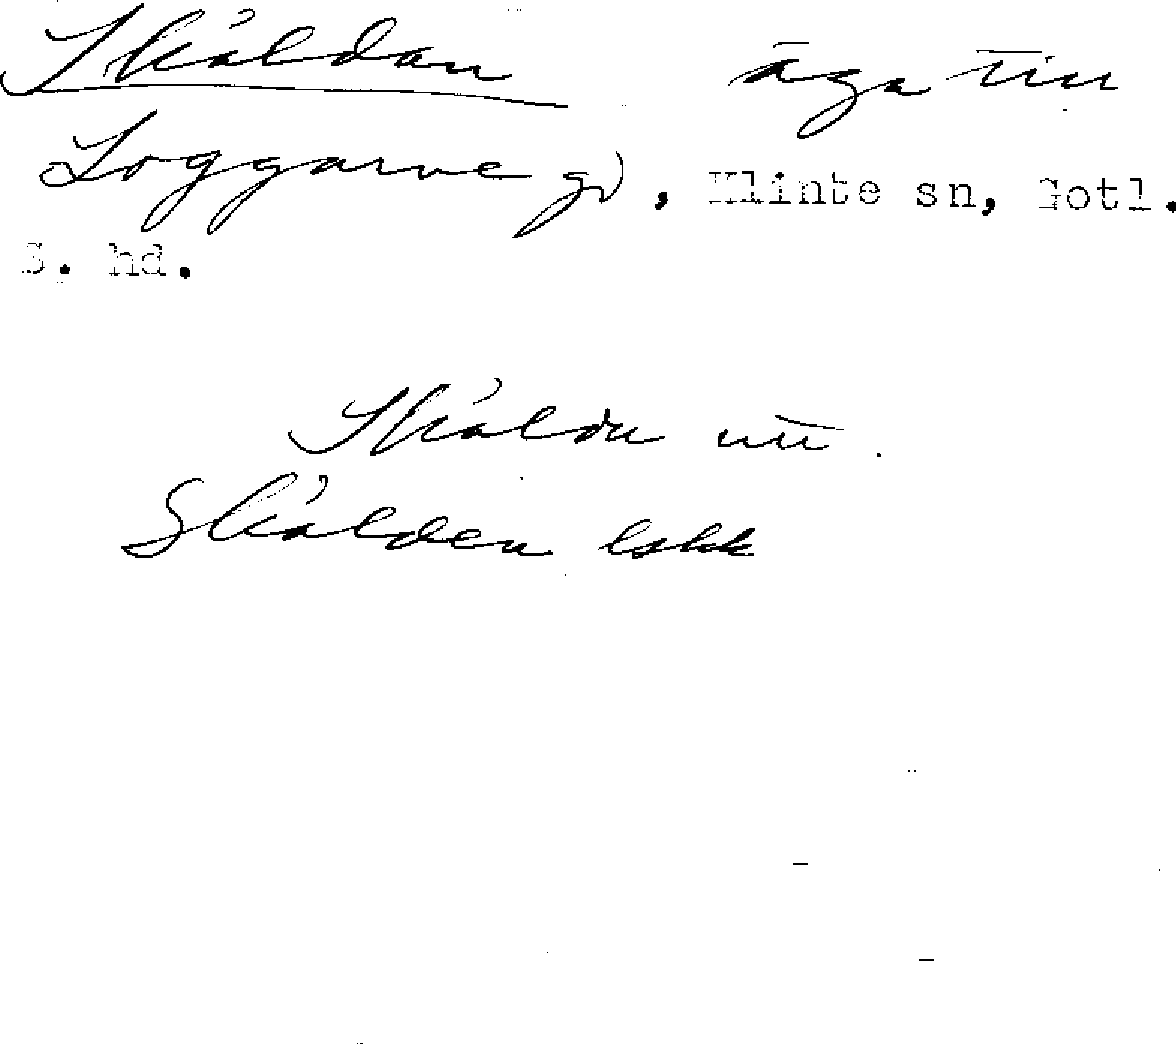 Skåldan äga till
Loggarve gd, Klinte sn, Gotl.
S. hd.
Skåldu
Skålden eskk